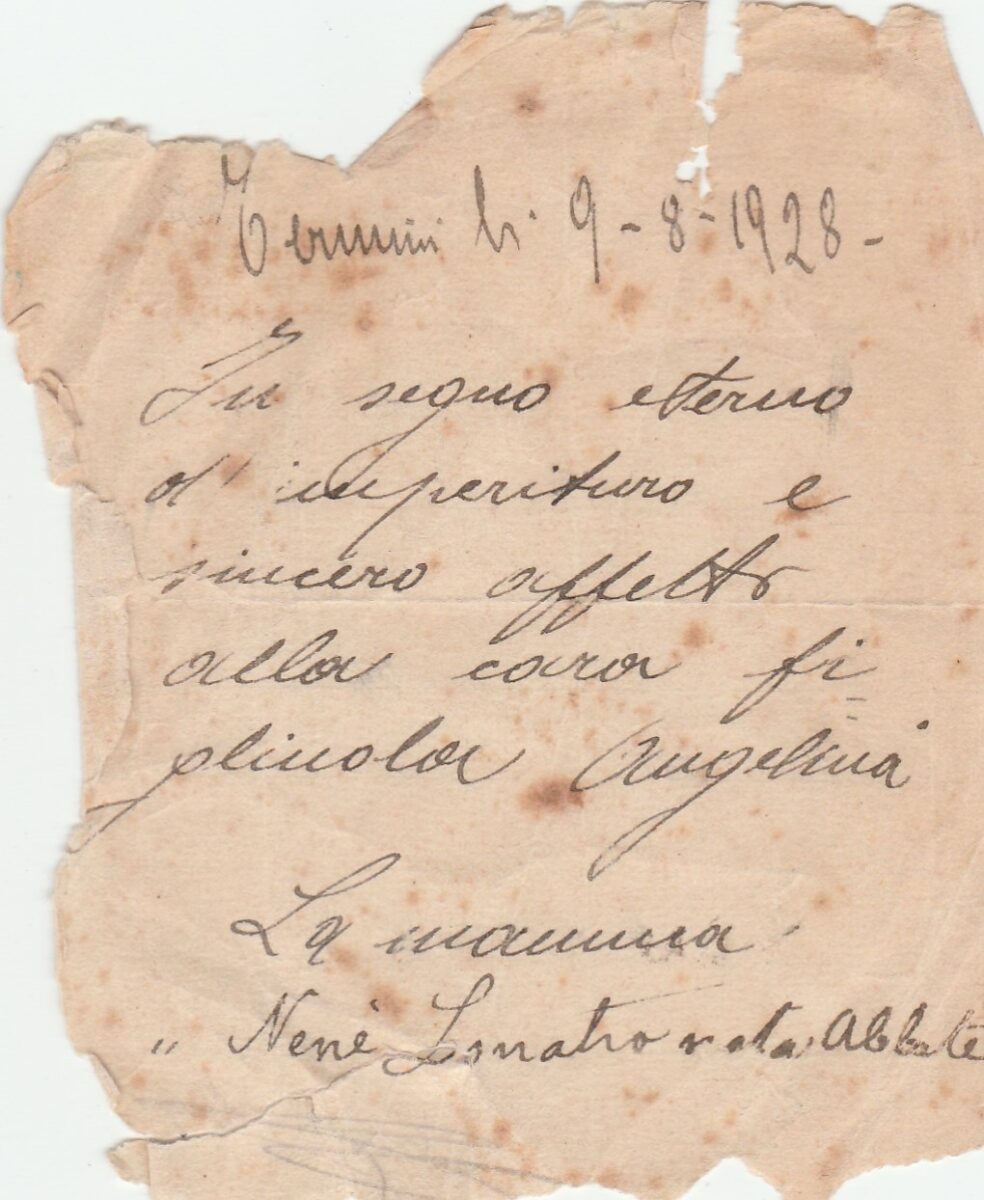 Termini li 9-8-1928-
In segno eterno
d'imperituro e
sincero affetto
alla cara fi=
gliuola Angelina
La mamma
" Nenè Lo nata Abbate